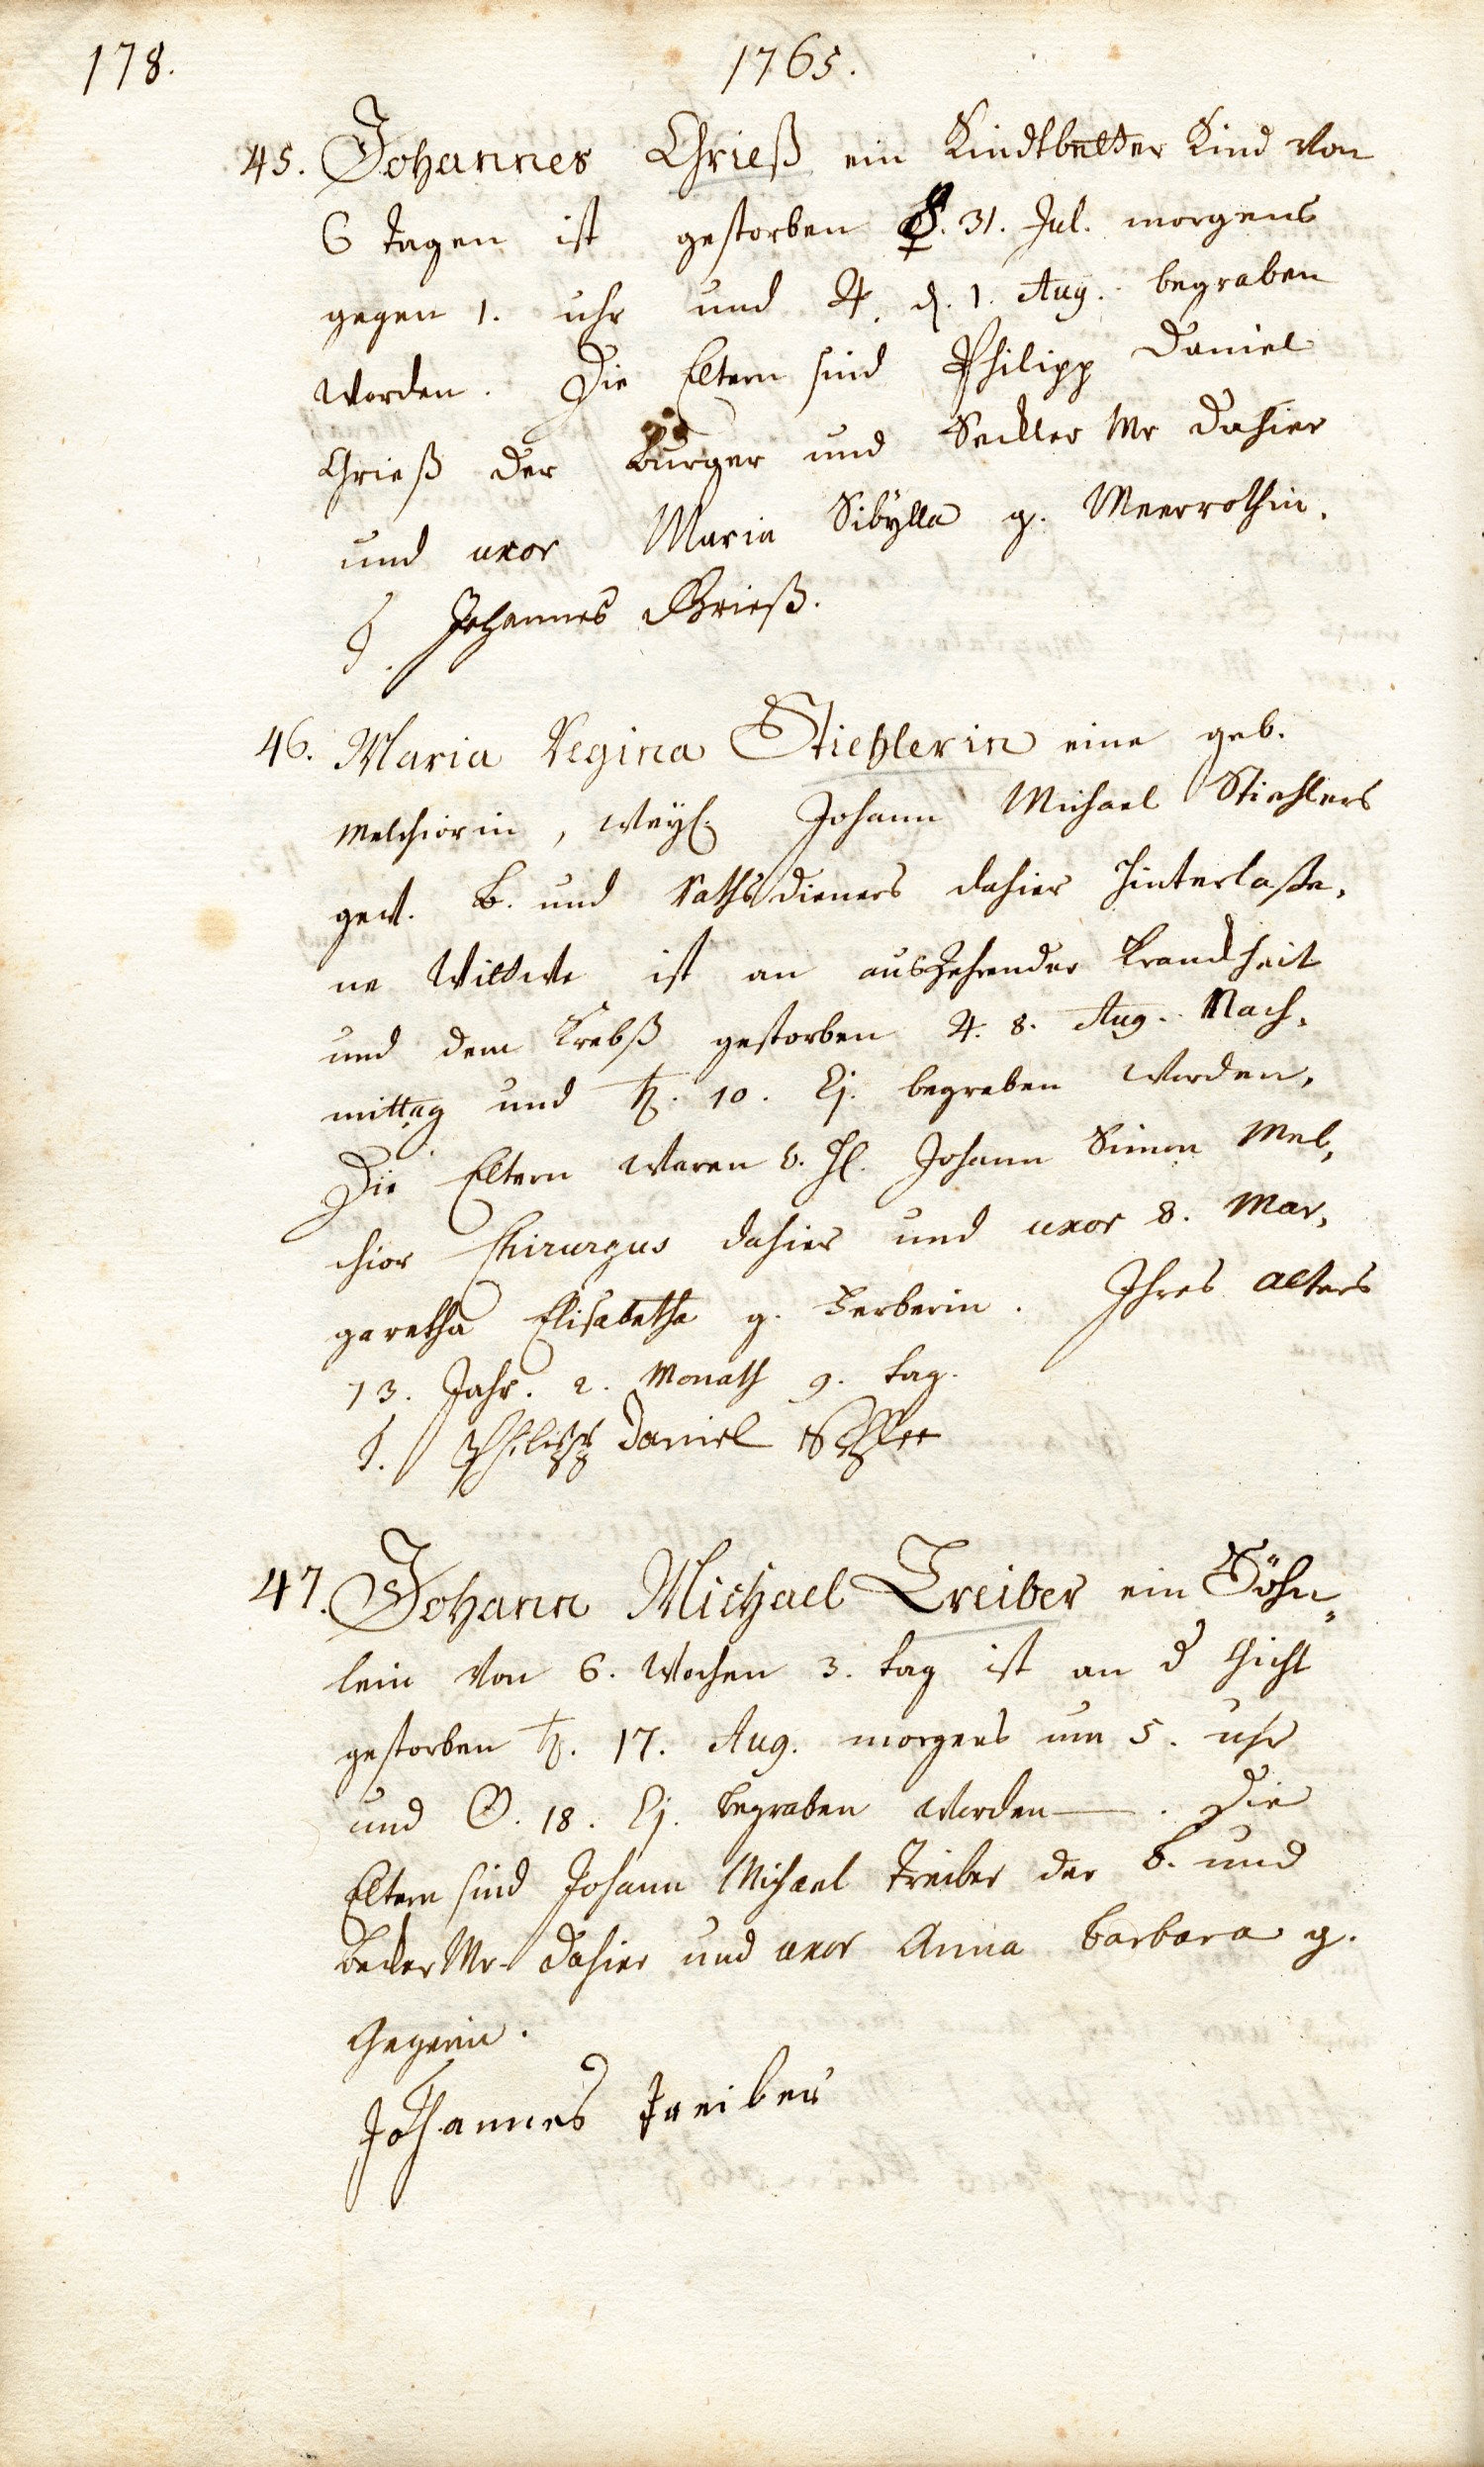 178.
1765.
45. Johannes Grieß ein Kindtbetter Kind von
6 tagen ist gestorben ☿. 31. Jul. morgens
gegen 1. uhr und ♃. d. 1. Aug. begraben
worden. Die Eltern sind Philipp Daniel
Grieß der Burger und Seckler Mr dahier
und uxor Maria Sibÿlla g. Meerrothin.
T. Johannes Grieß.
46. Maria Regina Stiehlerin eine geb.
Melchiorin, weyl. Johann Michael Stiehlers
gew. B. und Rathsdieners dahier hinterlaße,
ne Wittwe ist an auszehrender Kranckheit
und dem Krebß gestorben ♃. 8. Aug. Nach,
mittag und ♄. 10. Ej. begraben worden.
Die Eltern waren H. Johann Simon Mel,
chior Chirurgus dahier und uxor Mar,
garetha Elisabetha g. Ferberin. Ihres alters
73. Jahr. 2. Monath 9. tag.
T. Philipp Daniel
47. Johann Michael Treiber ein Söhn„
lein von 6. Wochen 3. tag ist an d Gicht
gestorben ♄. 17. Aug. morgens um 5. uhr
und ☉. 18. Ej. begraben worden. Die
Eltern sind Johann Michael Treiber der B. und
Becker Mr dahier und uxor Anna Barbara g.
Johannes Treiber